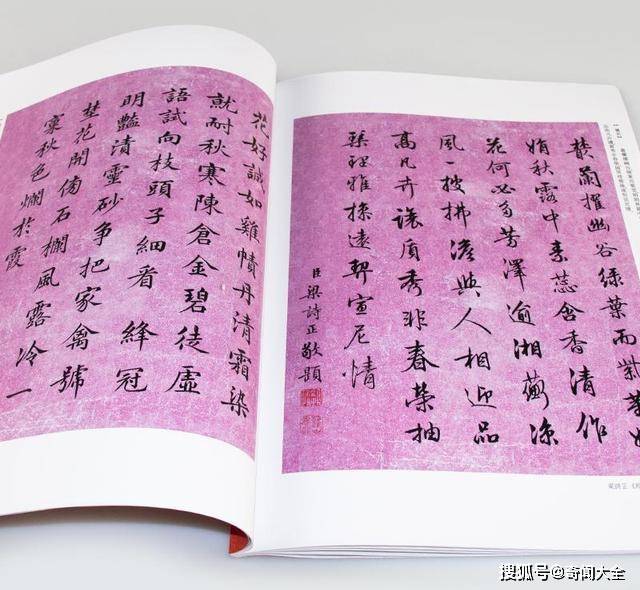 花好誠如雞幘丹清霜染
就耐秋寒陳倉金碧徒虛
語試向枝頭子細看 絳冠
明豔清靈砂争把家禽號
埜花開傍石欄風露冷一
窠秋色爛於霞
蘭擢幽谷綠葉而紫莖娟
娟秋露中素蕊含香清作
花何必多芳澤逾湘蘅涼
風一披拂澹與人相迎品
高凡卉讓質秀非春榮抽
琴理雅操遠契宣尼情
臣梁詩正敬題
搜狐号@奇闻大全